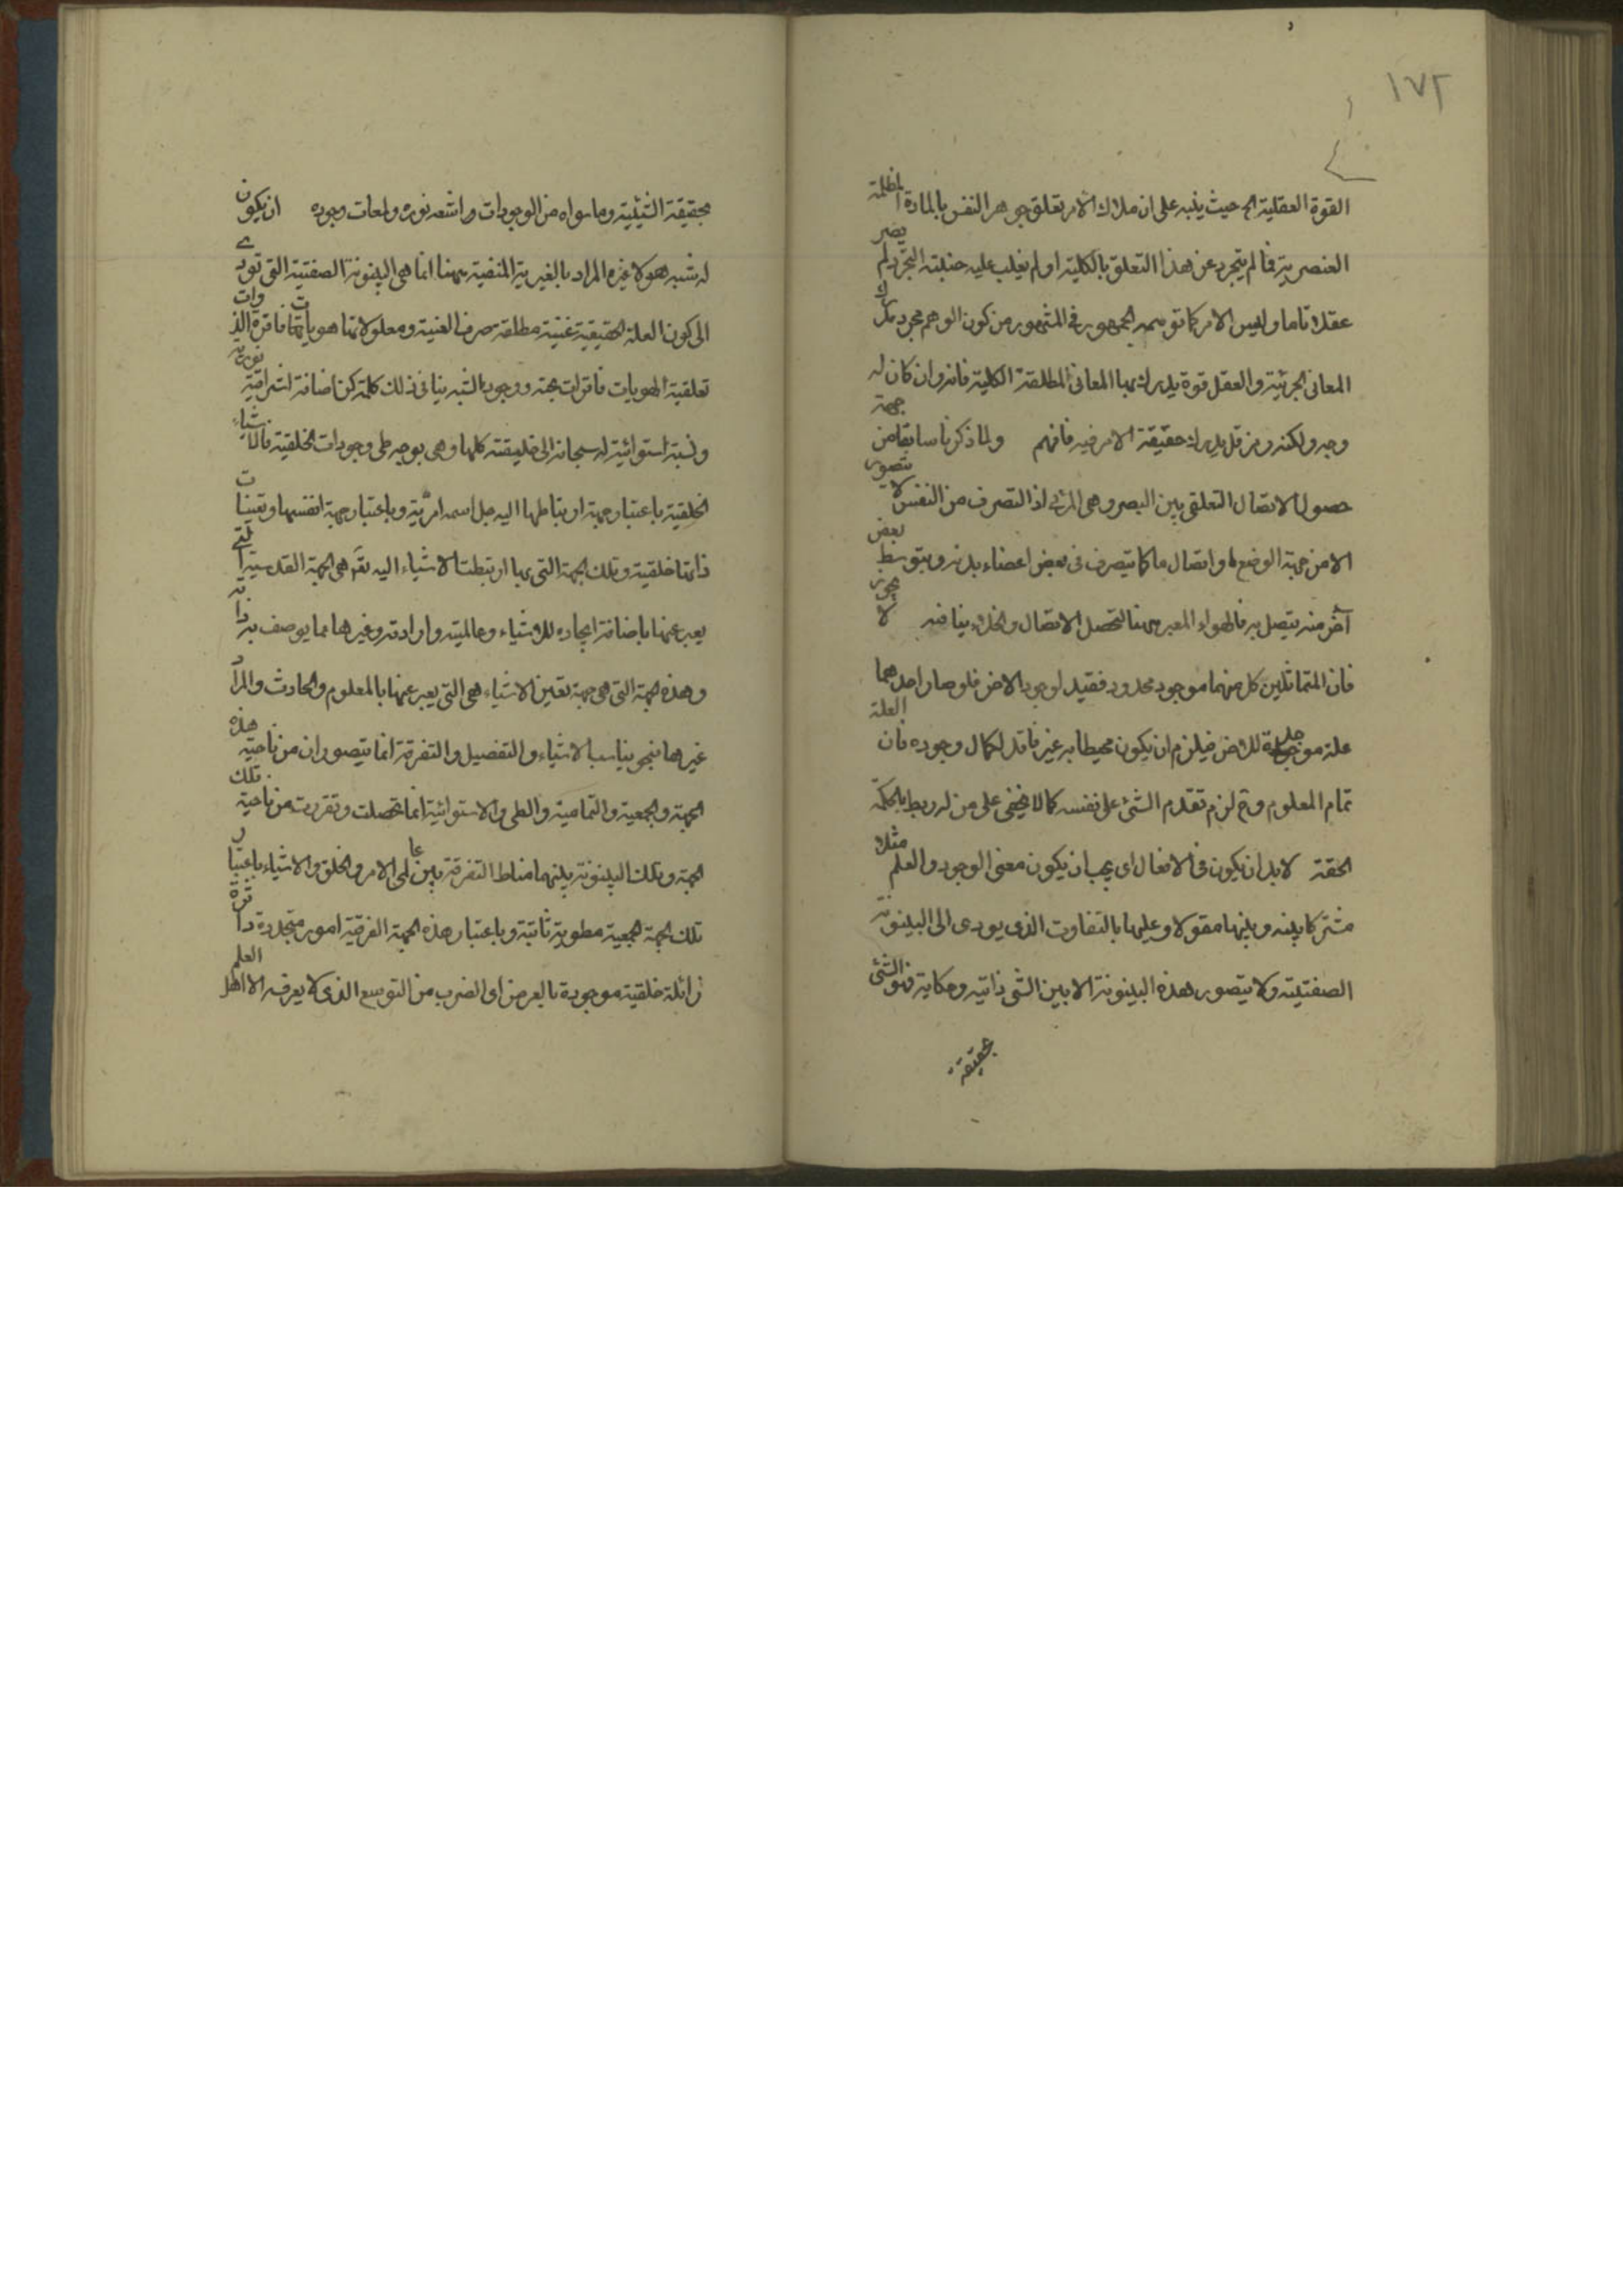 ١٧٢
القوة العقلية الخ حيث ينبه على ان ملاك الامر تعلق جوهر النفس بالمادة المظلمة
العنصرية فما لم يتجرد عن هذا التعلق بالكلية او لم يغلب عليه جنبته التجرد لم يصر
عقلا تاما وليس الامر كما توهمه الجمهور في المشهور من كون الوهم مجرد مدرك
المعاني الجزئية والعقل قوة يدرك بها المعاني المطلقة الكلية فانه وان كان له
وجه ولكنه رمز قل يدرك حقيقة الامر فيه فافهم ولما ذكرنا سابقا من جهة
حصول الاتصال التعلقي بين البصر وهي المرئي اذ التصرف من النفس لا يتصور
الا من جهة الوضع لها واتصال ما كما يتصرف في بعض اعضاء بدنه وبتوسط بعض
آخر منه يتصل به فالهواء المعبر ههنا لتحصل الاتصال والخلاء ينافيه لا يجوز
فان المتماثلين كل منهما موجود محدود فقيد لوجود الاخر فلو صار احدهما
علة موجدة للاخر فيلزم ان يكون محيطا به غير فاقد لكمال وجوده فان العلة
تمام المعلول وح لزم تقدم الشئ على نفسه كما لا يخفى على من له ربط بالحكمة
الحقة لابد ان يكون في الافعال اي يجب ان يكون معنى الوجود والعلم مثلا
مشتركا بينه وبينها مقولا وعليها بالتفاوت الذي يودى الى البينونة
الصفتيته ولا يتصور هذه البينونة الا بين الشئ ذاتيه وحكايه فنو الشئ
بحقيقة
بحقيقة الشيئية وما سواه من الوجودات واشعه نوره ولمعات وجوده ان يكون
له شبه هو لا غيره المراد بالغيرية المنفية ههنا انما هي البينونة الصفتية التي تودى
الى كون العلة الحقيقية غنية مطلقة صرف الغنية ومعلولاتها هوياتها فاقرة الذوات
تعلقية الهويات فاقرات جهة ووجود الشبه ينافي ذلك كلمة كن اضافة اشراقية نورية
ونسبة استوائية له سبحانه الى خليقته كلها وهي بوجه طى وجودات الخلقية فالاشياء
الخلقية باعتبار جهة ارتباطها اليه جل اسمه امرية وباعتبار جهة انفسها وتعينات
ذاتها خلقية وتلك الجهة التي بها ارتبطت الاشياء اليه تع هي الجهة القدسية التي
يعبر عنها باضافة ايجاده للاشياء وعالميته وارادته وغيرها مما يوصف به ذاته
وهذه الجهة التي هي جهة تعين الاشياء هي التي يعبر عنها بالمعلوم والحادث والمراد
غيرهما بنحو يناسب الاشياء والتفصيل والتفرقة انما يتصوران من ناحية هذه
الجهة والجمعية والتمامية والطى والاستوائية انما تحصلت وتقررت من ناحية تلك
الجهة وتلك البينونة بينهما مناط التفرقة بين عالمى الامر والخلق والاشياء باعتبار
تلك الجهة الجمعية مطوية ثابتة وباعتبار هذه الجهة الفرقية امور متجددة داثرة
زائلة خلقية موجودة بالعرض او الضرب من التوسع الذى لا يعرفه الا اهل العلم